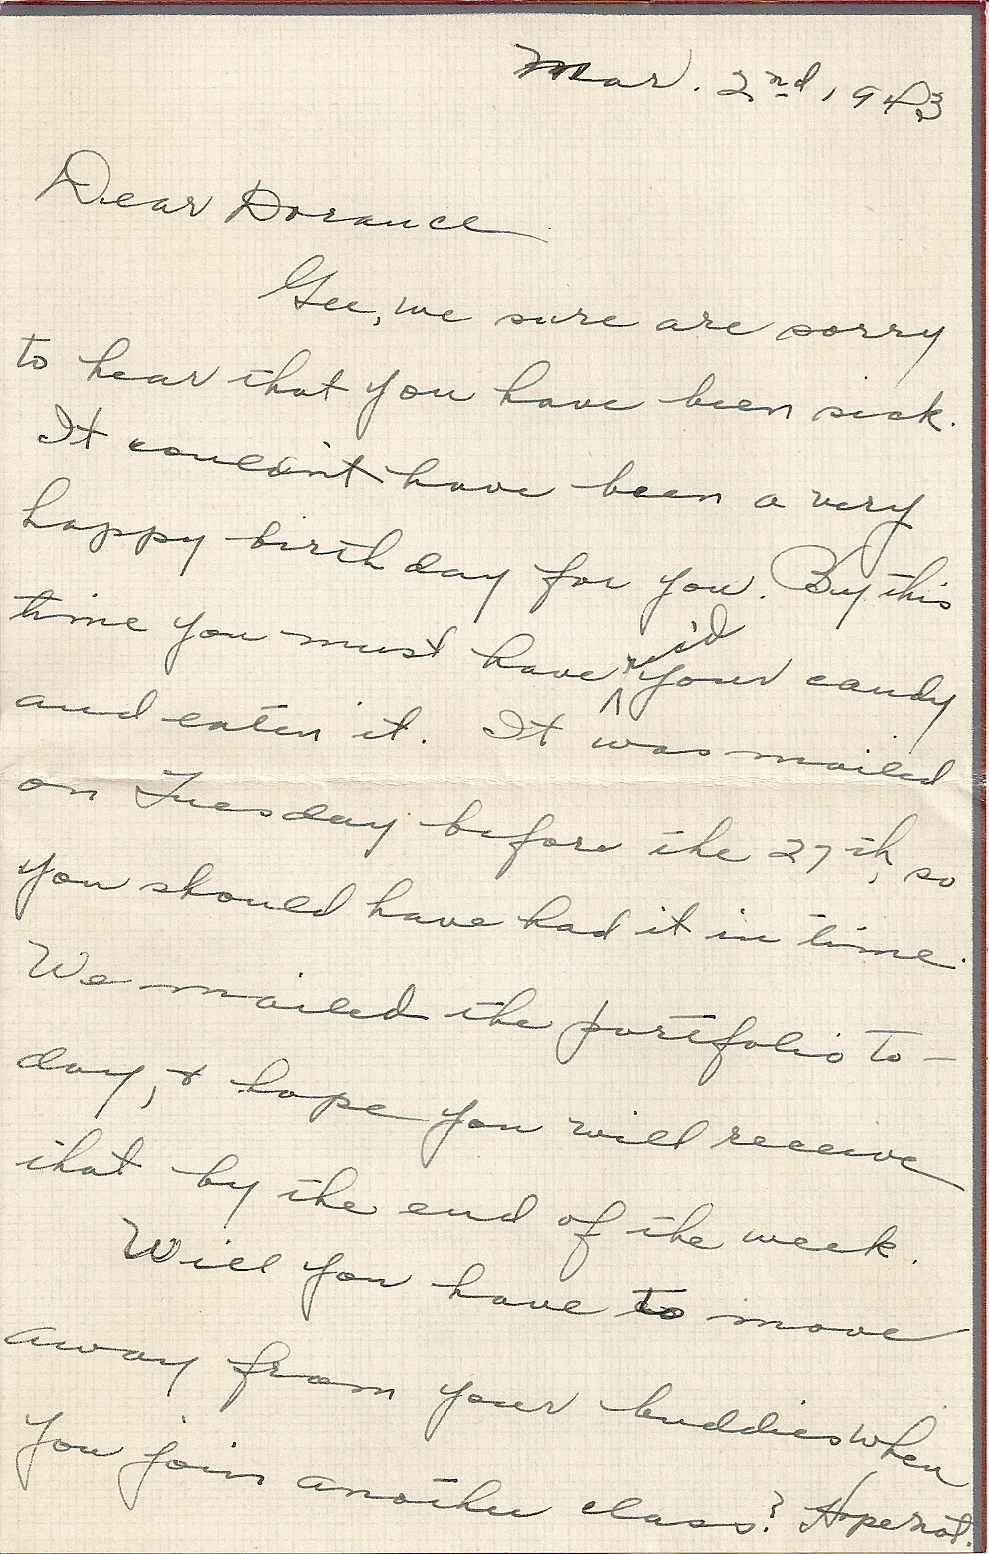 Mar. 2nd, 1943
Dear Dorance
Gee, we sure are sorry
to hear that you have been sick.
It couldn't have been a very
happy birthday for you. By this
time you must have rec'd your candy
and eaten it. It was mailed
on Tuesday before the 27th, so
you should have had it in time.
We mailed the portfolio to-
day, & hope you will receive
that by the end of the week.
Will you have to move
away from your buddies when
you join another class? Hope not.